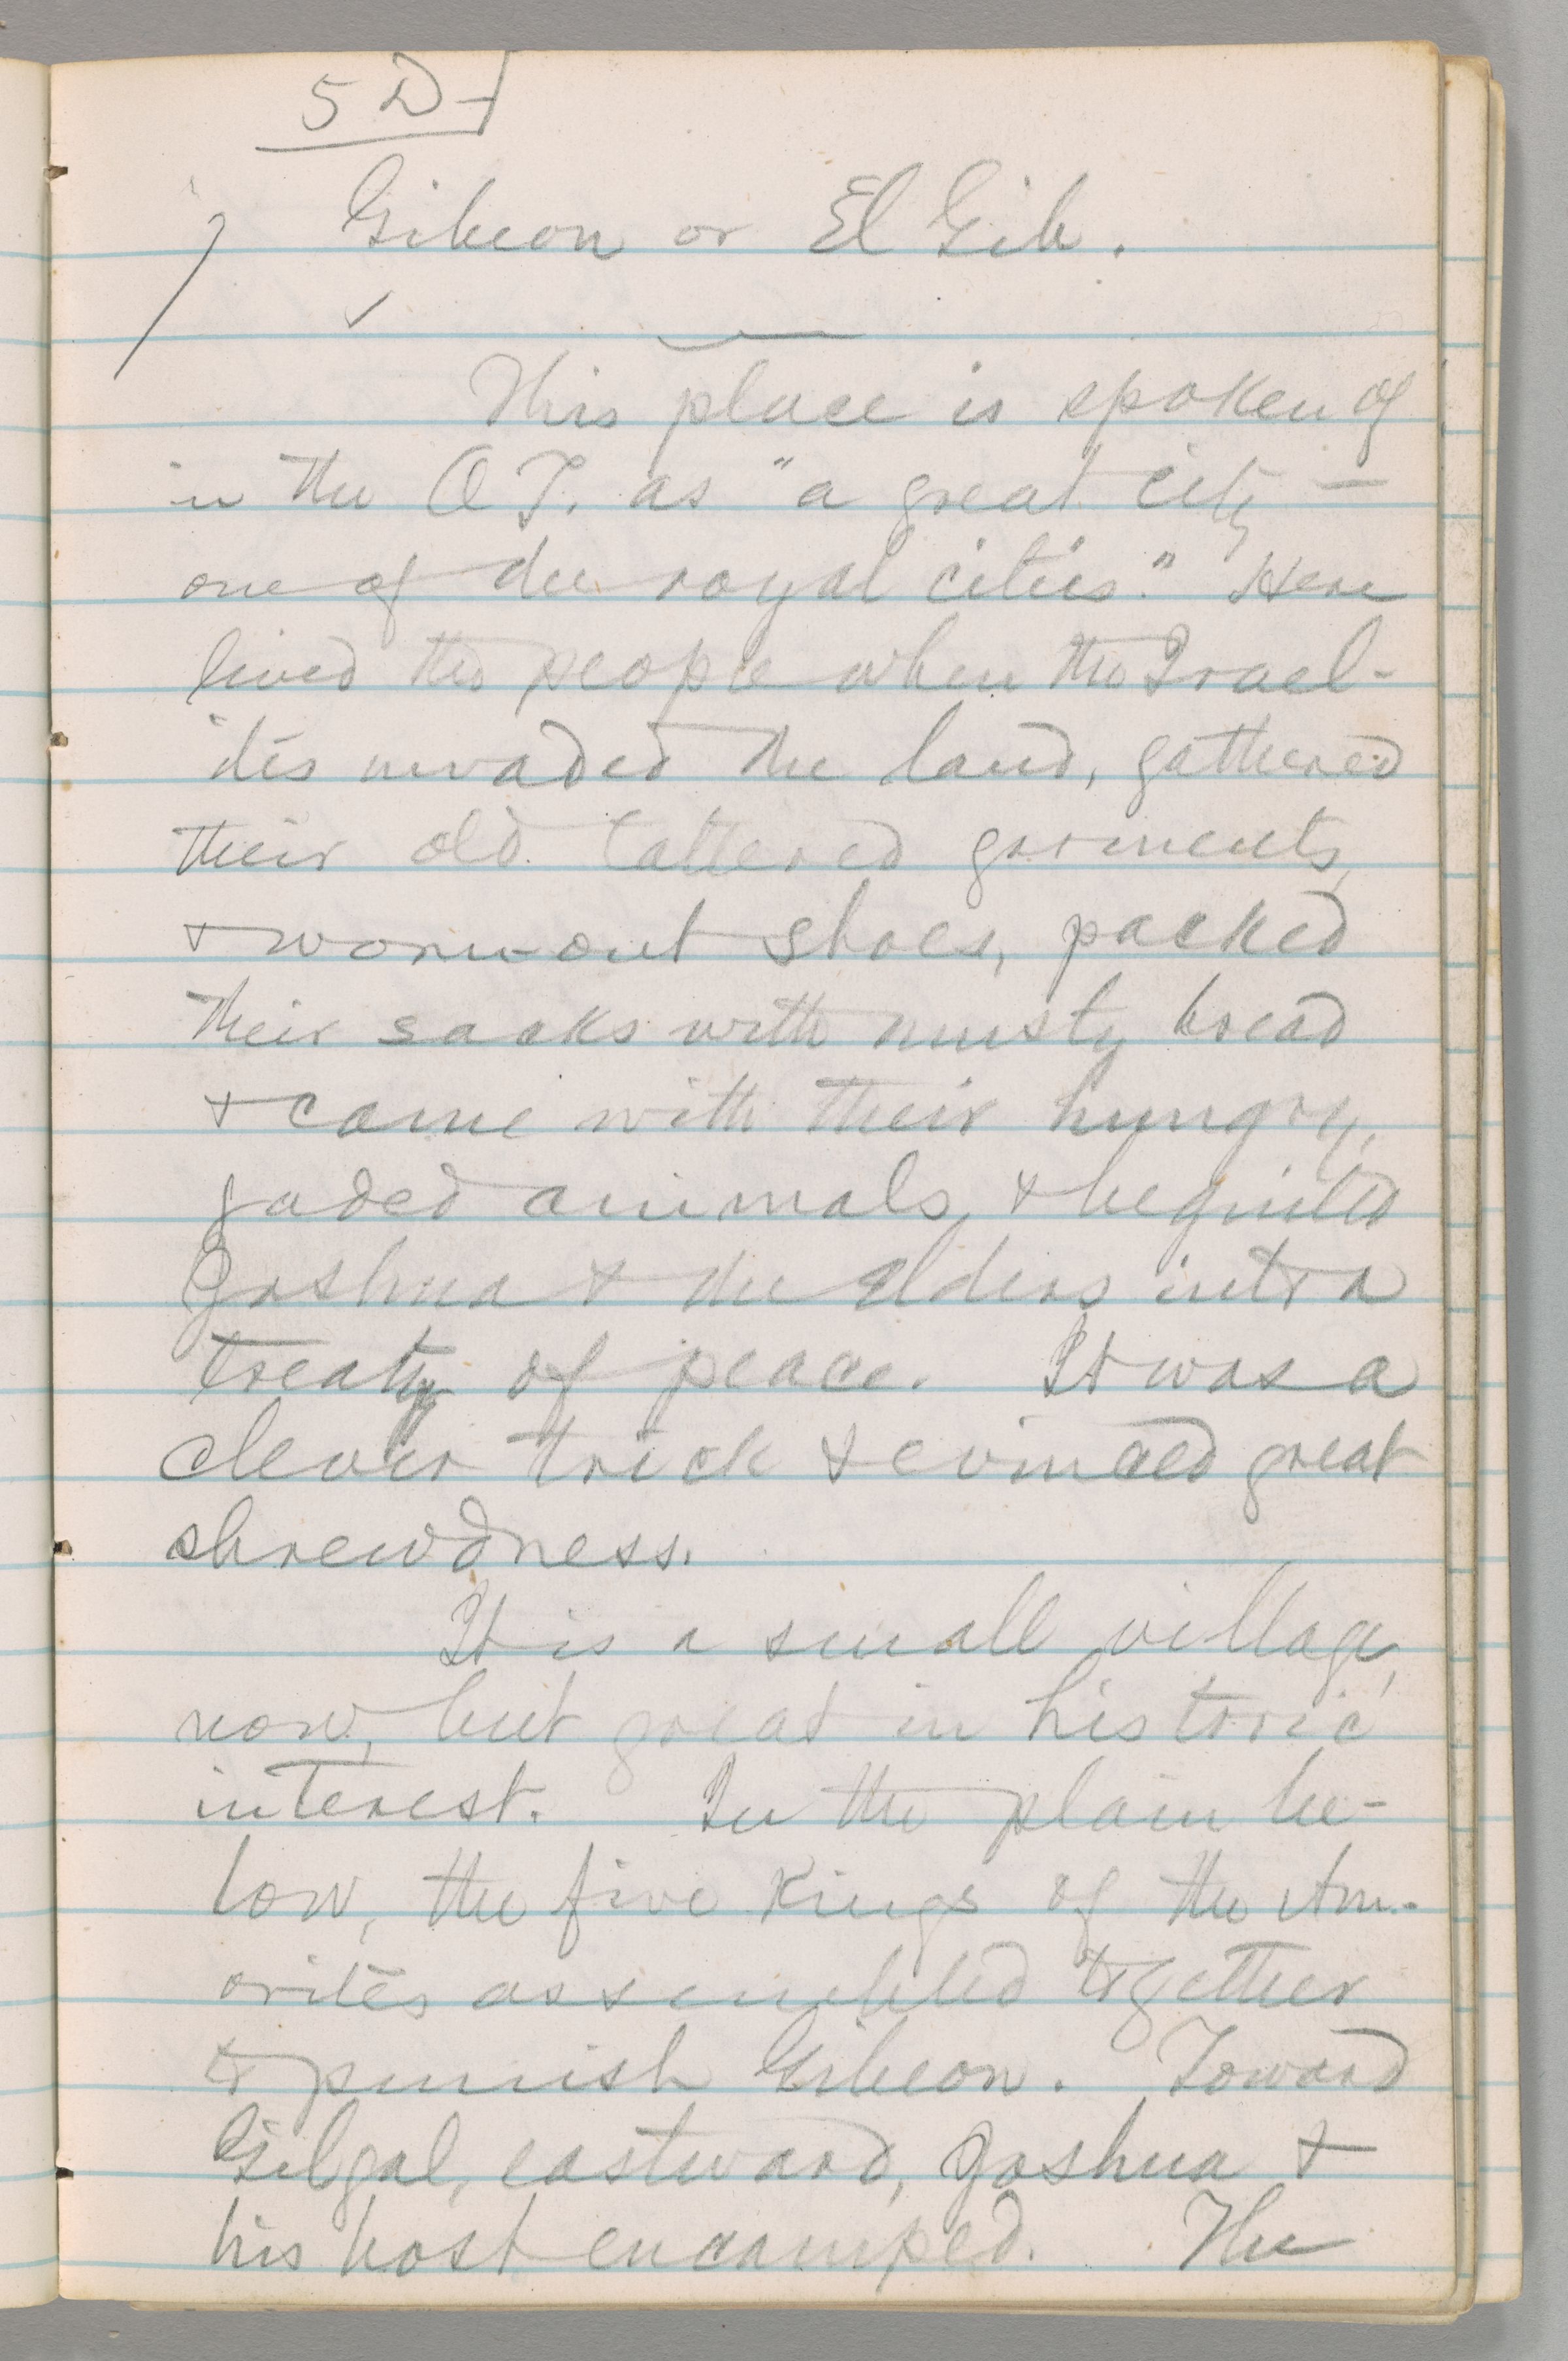 5 D-
Gibeon or El Gib.
This place is spoken of
in the O T. as "a great city —
one of the royal cities." Here
lived the people when the Israel-
ites invaded the land, gathered
their old tattered garments,
& worn-out shoes, packed
their sacks with musty bread
& came with their hungry,
jaded animals, & beguiled
Joshua & the Elders into a
treaty of peace. It was a
clever trick & evinced great
shrewdness.
It is a small village,
now, but great in historic
interest. In the plain be-
low, the five Kings of the Am-
orites assembled together
to punish Gibeon. Toward
Gilgal, eastward, Joshua &
his host encamped. The